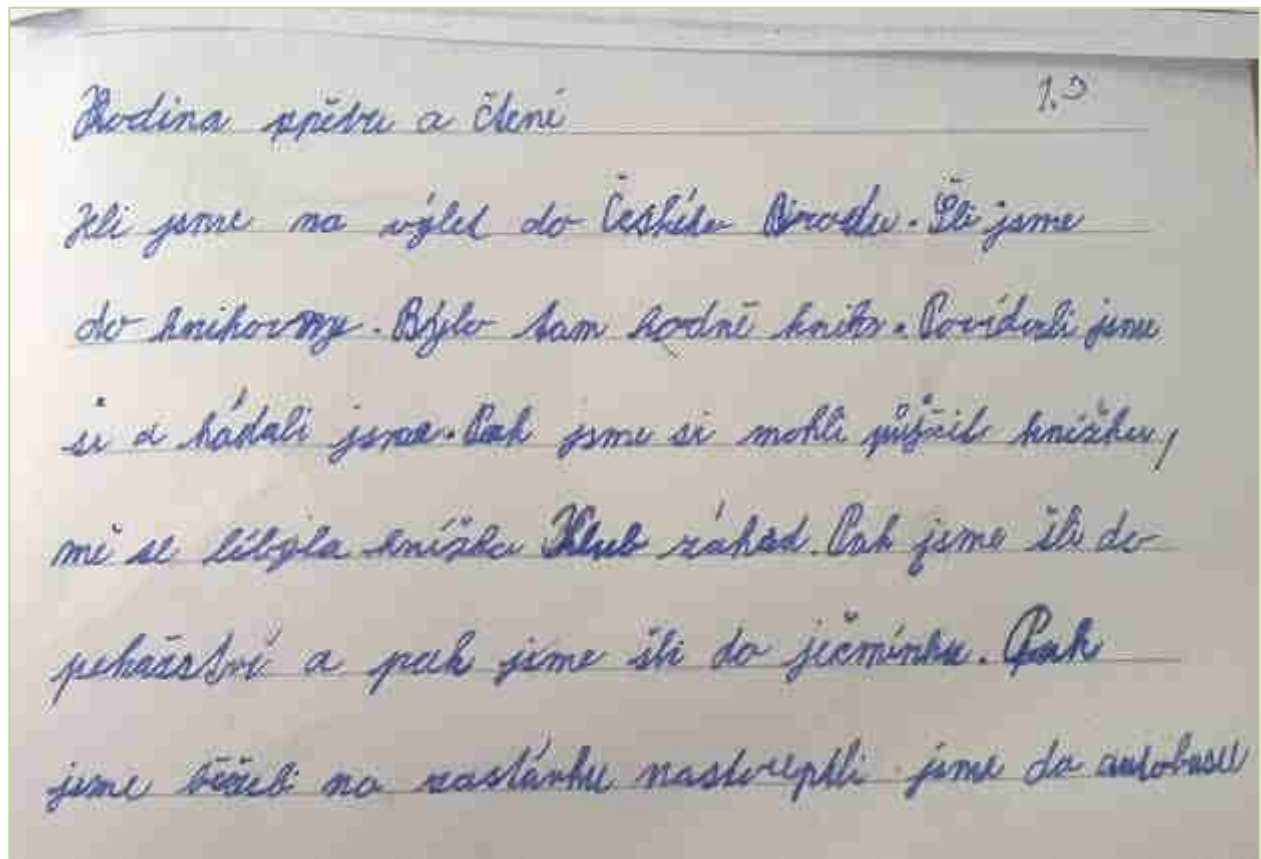 Hodina zpěvu a čtení 1.D
Jeli jsme na výlet do Českého Brodu. Šli jsme
do knihovny. Býlo tam hodně knih. Povídali jsme
si a hádali jsme. Pak jsme si mohli půjčit knížku,
mě se líbyla knížka Klub záhad. Pak jsme šli do
pekařství a pak jsme šli do ječmínku. Pak
jsme běželi na zastávku jsme do autobusu